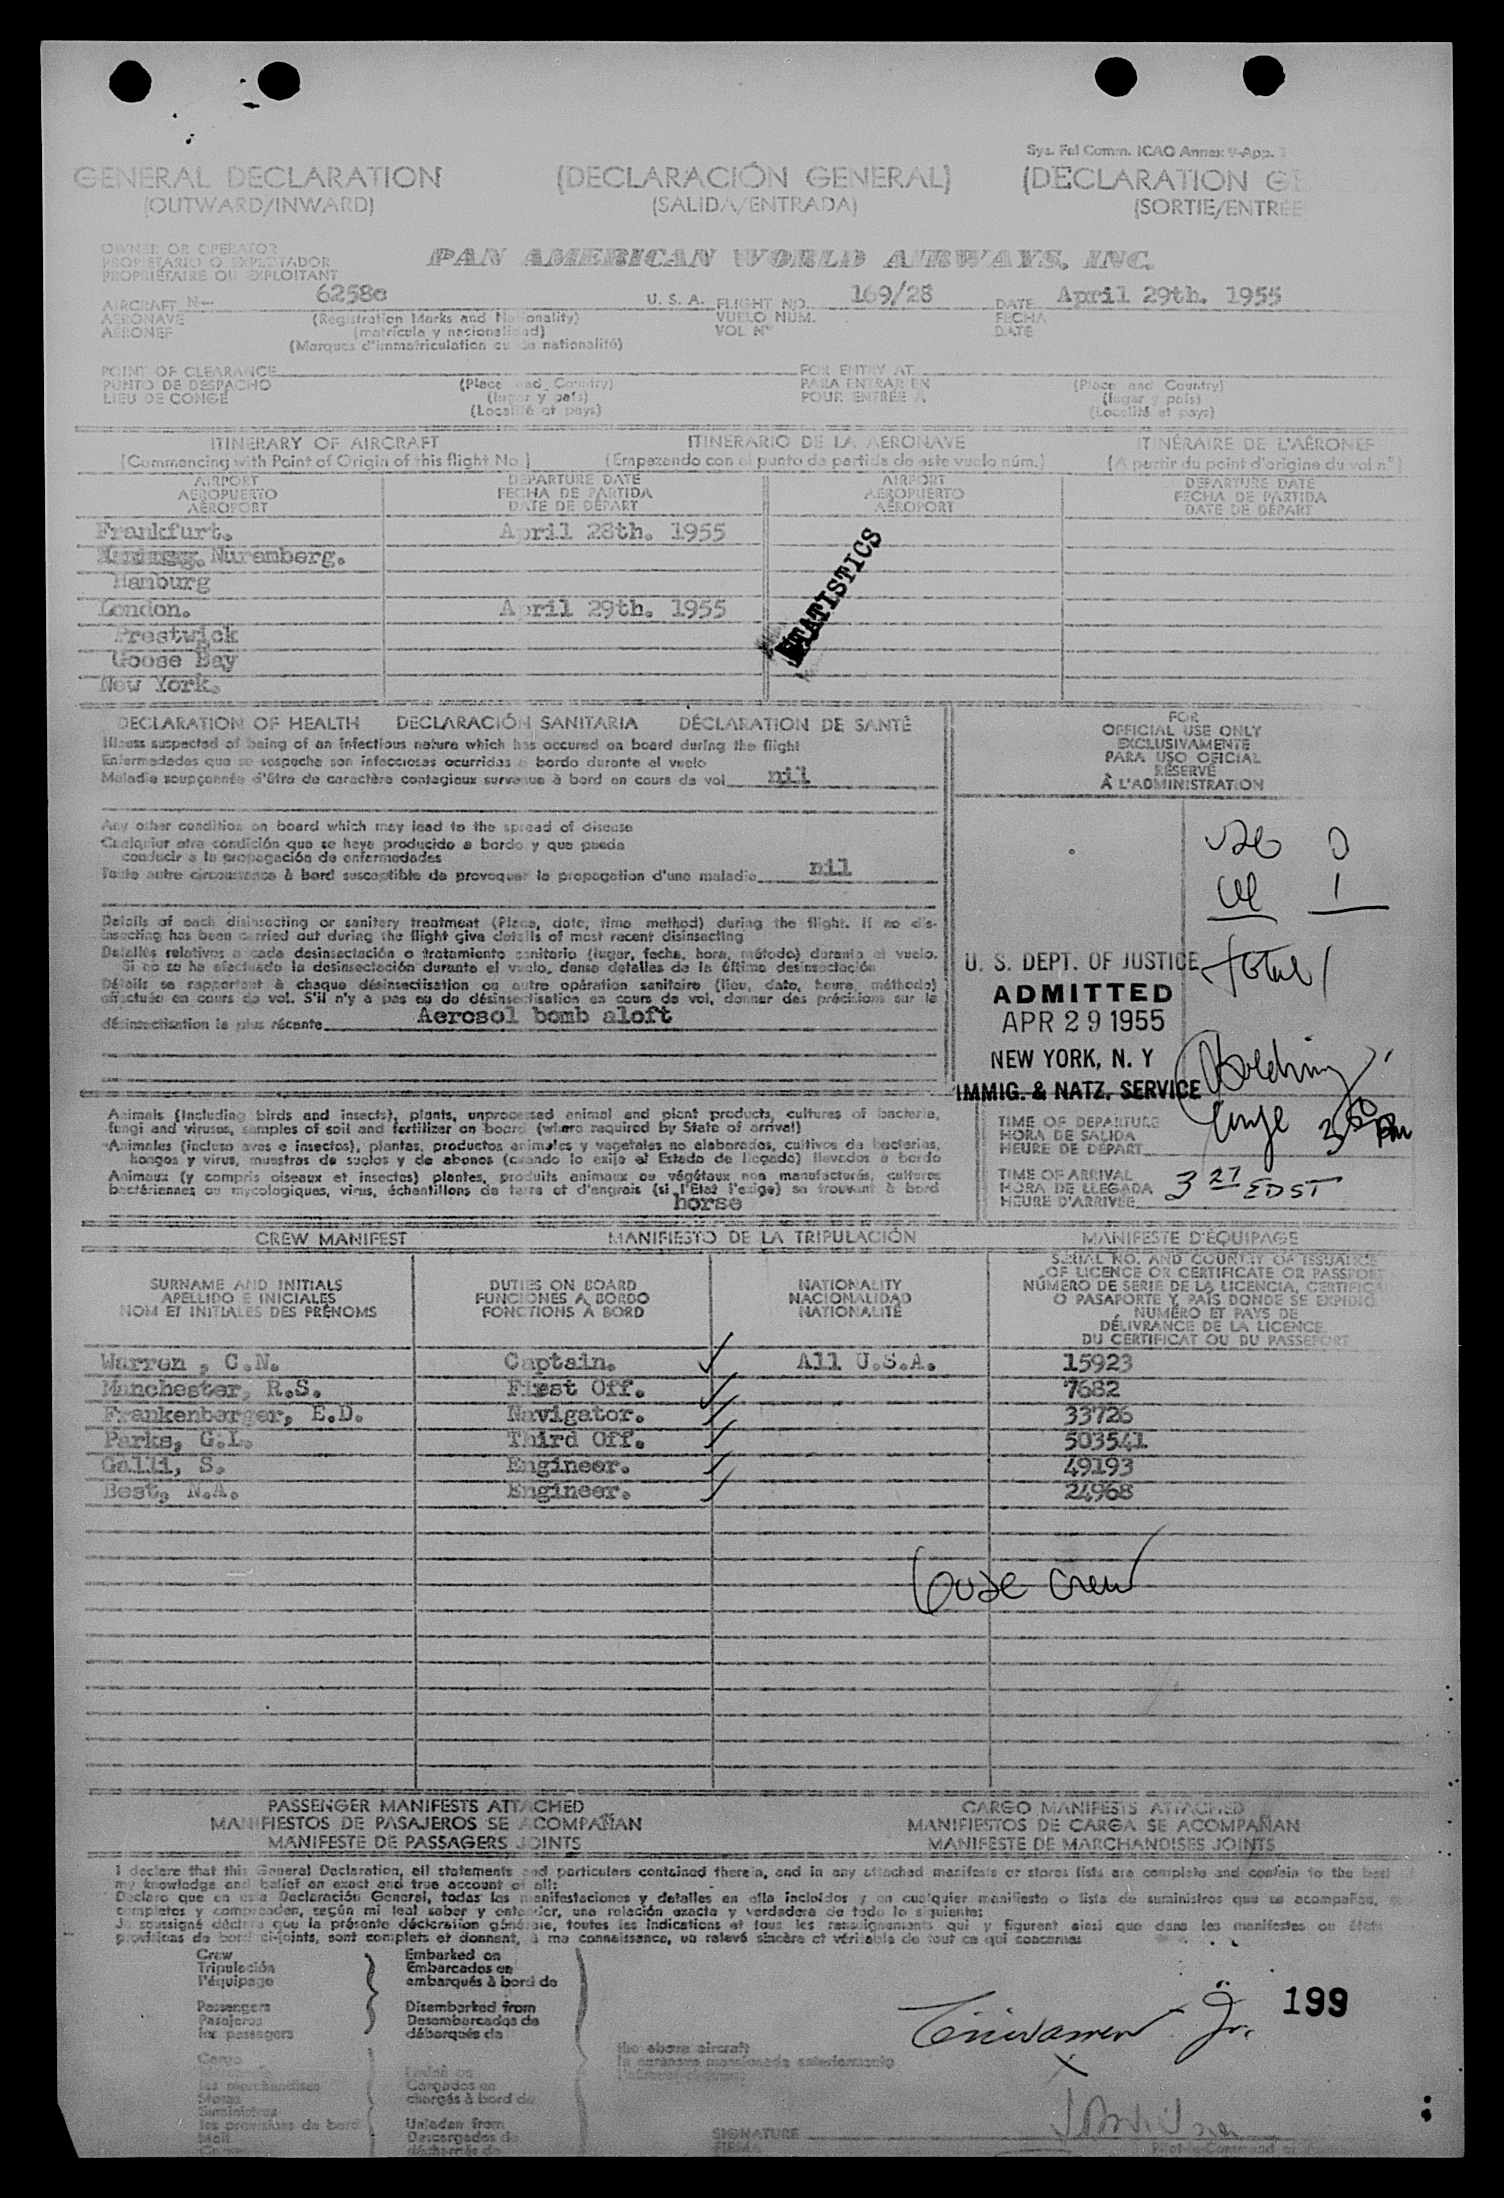 Sys. Fal Comm. ICAO Annex 9-App.
GENERAL DECLARATION (DECLARACIÓN GENERAL) (DÉCLARATION GE
(OUTWARD/INWARD) (SALIDA/ENTRADA) (SORTIE/ENTRÉE
OWNER OR OPERATOR
PROPIETARIO O EXPLOTADOR
PROPRIÉTAIRE OU EXPLOITANT
PAN AMERICAN WORLD AIRWAYS, INC.
AIRCRAFT N— 6258c U. S. A. FLIGHT NO. 169/28 DATE April 29th. 1955
AERONAVE (Registration Marks and Nationality) VUELO NÚM. FECHA
AÉRONEF (matrícula y nacionalidad) VOL Nº DATE
(Marques d'immatriculation ou de nationalité)
POINT OF CLEARANCE FOR ENTRY AT
PUNTO DE DESPACHO (Place and Country) PARA ENTRAR EN (Place and Country)
LIEU DE CONGÉ (lugar y país) POUR ENTRÉE À (lugar y país)
(Localité et pays) (Localité et pays)
ITINERARY OF AIRCRAFT ITINERARIO DE LA AERONAVE ITINÉRAIRE DE L'AÉRONEF
(Commencing with Point of Origin of this flight No.) (Empezando con el punto de partida de este vuelo núm.) (A partir du point d'origine du vol nº)
AIRPORT DEPARTURE DATE AIRPORT DEPARTURE DATE
AEROPUERTO FECHA DE PARTIDA AEROPUERTO FECHA DE PARTIDA
AÉROPORT DATE DE DÉPART AÉROPORT DATE DE DÉPART
Frankfurt. April 28th. 1955
Nuremberg.
Hamburg
London. April 29th. 1955
Prestwick
Goose Bay
New York.
STATISTICS
DECLARATION OF HEALTH DECLARACIÓN SANITARIA DÉCLARATION DE SANTÉ
Illness suspected of being of an infectious nature which has occured on board during the flight
Enfermedades que se sospeche son infecciosas ocurridas a bordo durante el vuelo
Maladie soupçonnée d'être de caractère contagieux survenue à bord en cours de vol nil
Any other condition on board which may lead to the spread of disease
Cualquier otra condición que se haya producido a bordo y que pueda
conducir a la propagación de enfermedades
Toute autre circonstance à bord susceptible de provoquer la propagation d'une maladie nil
Details of each disinsecting or sanitary treatment (Place, date, time method) during the flight. If no dis-
insecting has been carried out during the flight give details of most recent disinsecting
Detalles relativos a cada desinsectación o tratamiento sanitario (lugar, fecha, hora, método) durante el vuelo.
Si no se ha efectuado la desinsectación durante el vuelo, dense detalles de la última desinsectación
Détails se rapportant à chaque désinsectisation ou autre opération sanitaire (lieu, date, heure, méthode)
effectuée en cours de vol. S'il n'y a pas eu de désinsectisation en cours de vol, donner des précisions sur la
désinsectisation la plus récente Aerosol bomb aloft
FOR
OFFICIAL USE ONLY
EXCLUSIVAMENTE
PARA USO OFICIAL
RÉSERVÉ
À L'ADMINISTRATION
0
1
total 1
U. S. DEPT. OF JUSTICE
ADMITTED
APR 29 1955
NEW YORK, N. Y
IMMIG. & NATZ. SERVICE
Animals (including birds and insects), plants, unprocessed animal and plant products, cultures of bacteria,
fungi and viruses, samples of soil and fertilizer on board (where required by State of arrival)
Animales (incluso aves e insectos), plantas, productos animales y vegetales no elaborados, cultivos de bacterias,
hongos y virus, muestras de suelos y de abonos (cuando lo exija el Estado de llegada) llevados a bordo
Animaux (y compris oiseaux et insectes) plantes, produits animaux ou végétaux non manufacturés, cultures
bactériennes ou mycologiques, virus, échantillons de terre et d'engrais (si l'Etat l'exige) se trouvant à bord
horse
TIME OF DEPARTURE
HORA DE SALIDA
HEURE DE DÉPART
3 50 Pm
TIME OF ARRIVAL
HORA DE LLEGADA
HEURE D'ARRIVÉE
3 27 EDST
CREW MANIFEST MANIFIESTO DE LA TRIPULACIÓN MANIFESTE D'ÉQUIPAGE
SURNAME AND INITIALS
APELLIDO E INICIALES
NOM ET INITIALES DES PRÉNOMS
DUTIES ON BOARD
FUNCIONES A BORDO
FONCTIONS À BORD
NATIONALITY
NACIONALIDAD
NATIONALITÉ
SERIAL NO. AND COUNTRY OF ISSUANCE
OF LICENCE OR CERTIFICATE OR PASSPORT
NÚMERO DE SERIE DE LA LICENCIA, CERTIFICA
O PASAPORTE Y PAÍS DONDE SE EXPIDIÓ
NUMÉRO ET PAYS DE
DÉLIVRANCE DE LA LICENCE
DU CERTIFICAT OU DU PASSEPORT
Warren , C.N. Captain. All U.S.A. 15923
Manchester, R.S. First Off. 7682
Frankenberger, E.D. Navigator. 33726
Parks, G.L. Third Off. 503541
Galli, S. Engineer. 49193
Best, N.A. Engineer. 24968
Crew
PASSENGER MANIFESTS ATTACHED CARGO MANIFESTS ATTACHED
MANIFIESTOS DE PASAJEROS SE ACOMPAÑAN MANIFIESTOS DE CARGA SE ACOMPAÑAN
MANIFESTE DE PASSAGERS JOINTS MANIFESTE DE MARCHANDISES JOINTS
I declare that this General Declaration, all statements and particulars contained therein, and in any attached manifests or stores lists are complete and contain to the best
my knowledge and belief an exact and true account of all:
Declaro que en esta Declaración General, todas las manifestaciones y detalles en ella incluidos y en cualquier manifiesto o lista de suministros que se acompañan,
completos y comprenden, según mi leal saber y entender, una relación exacta y verdadera de todo lo siguiente:
Je soussigné déclare que la présente déclaration générale, toutes les indications et tous les renseignements qui y figurent ainsi que dans les manifestes ou états
provisions de bord ci-joints, sont complets et donnent, à ma connaissance, un relevé sincère et véritable de tout ce qui concerne:
Crew Embarked on
Tripulación Embarcados en
l'équipage embarqués à bord de
Passengers Disembarked from
Pasajeros Desembarcados de
les passagers débarqués de
the above aircraft
la aeronave mencionada anteriormente
Cargo
les marchandises Cargados en
Stores chargés à bord de
Suministros
les provisions de bord Unladen from
Mail Descargados de
déchargés de
199
SIGNATURE
FIRMA
Pilot-in-Command